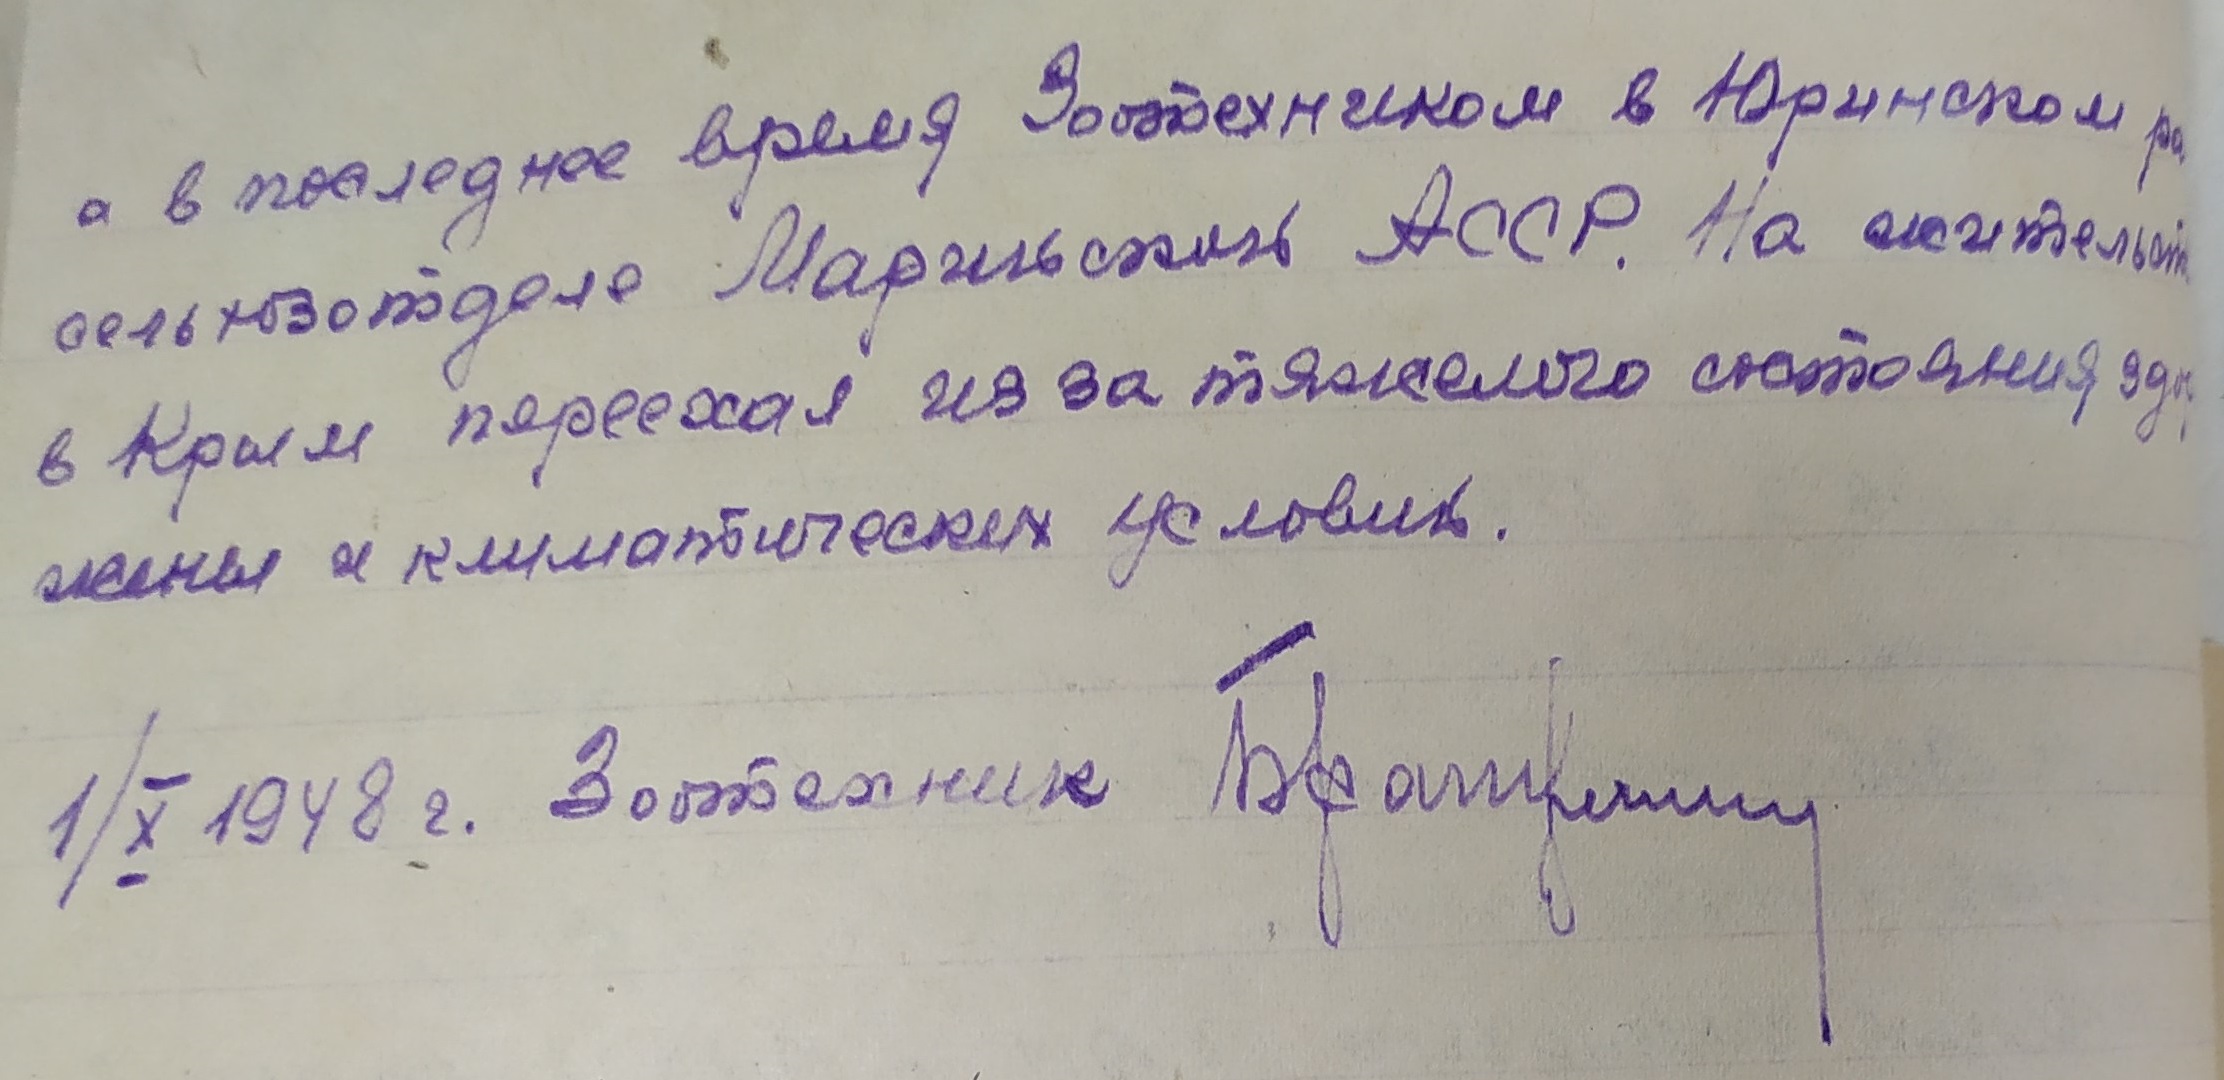 а в последнее время Зоотехником в Юринском ра
сельхозотделе Марийской АССР. На жительст
в Крым переехал из за тяжелого состояния здо
жены и климатических условий.
1/X 1948 г. Зоотехник